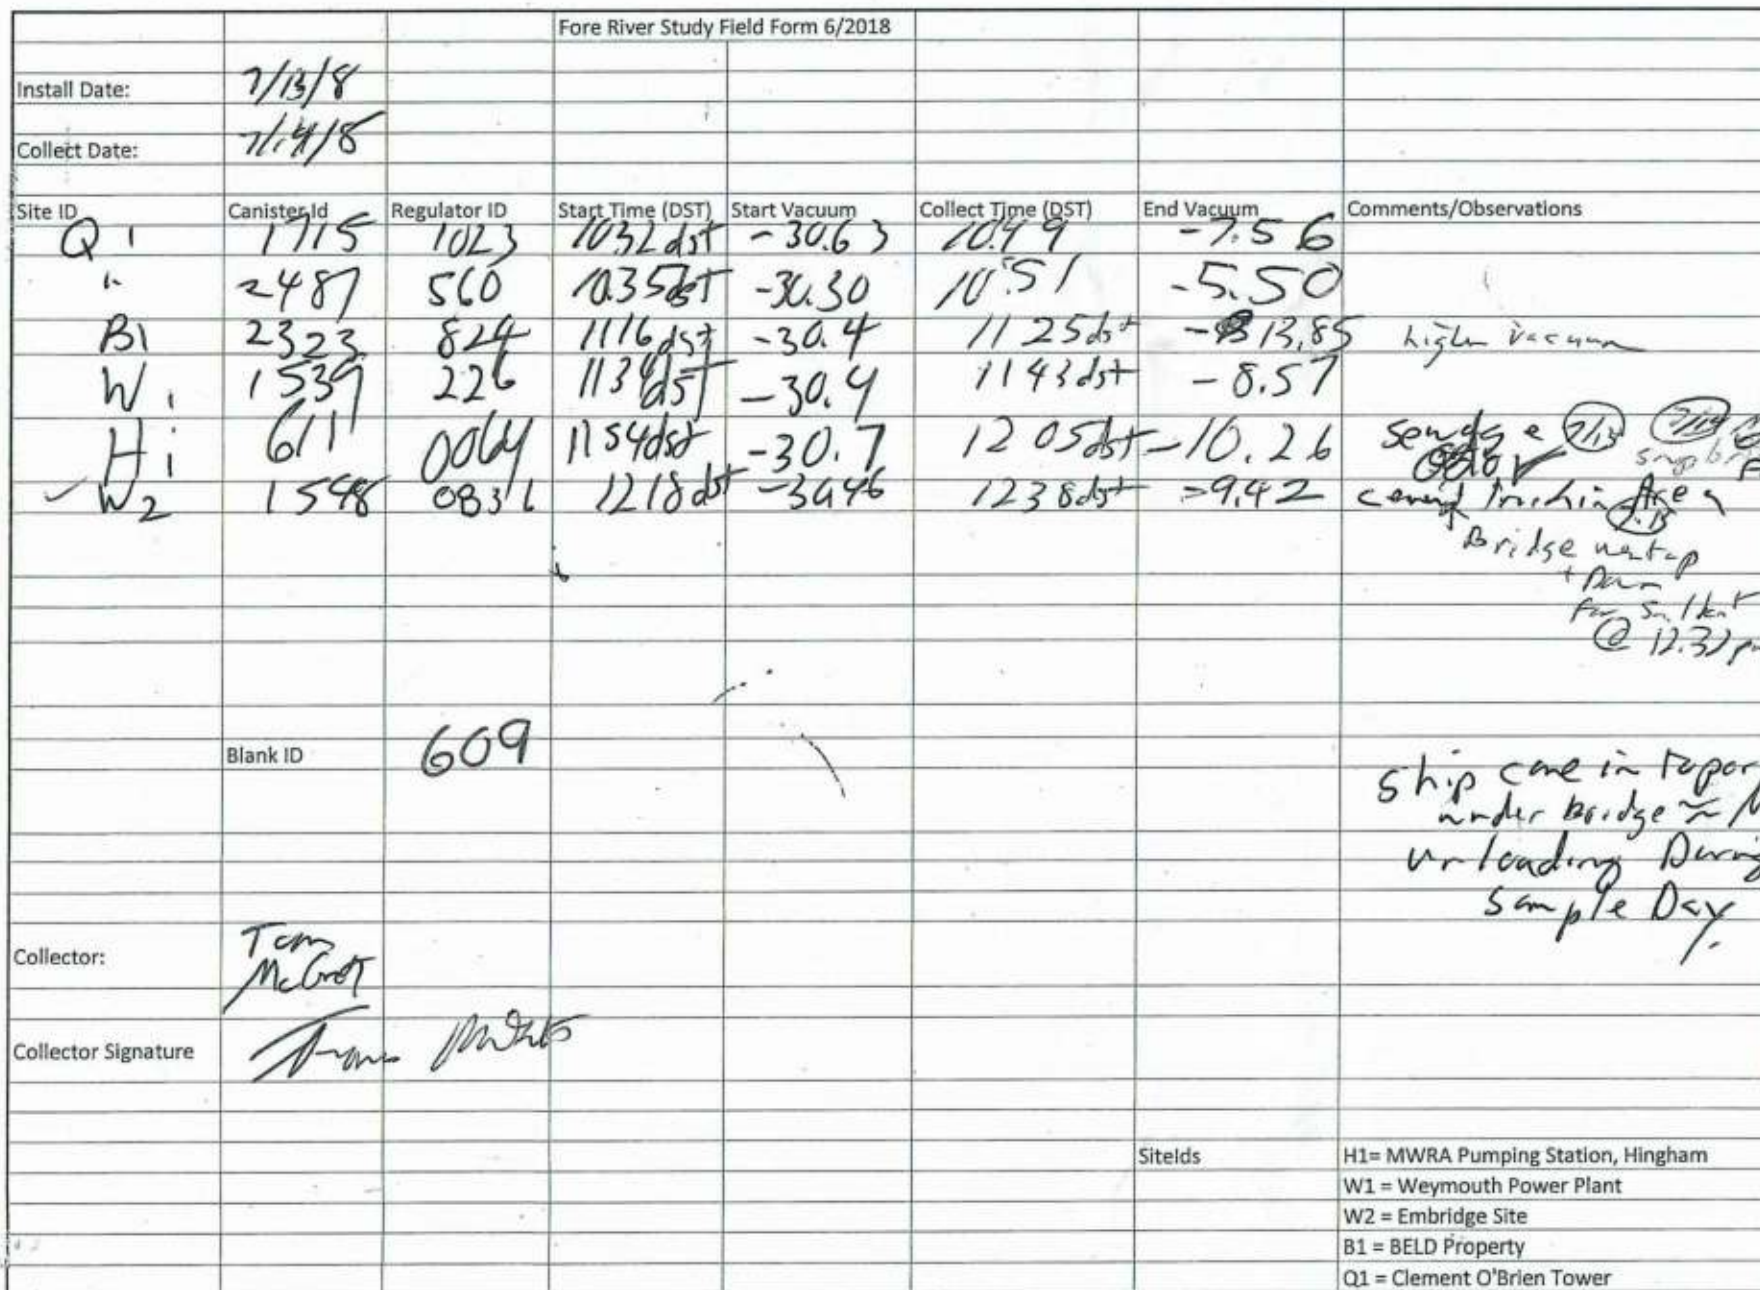 Fore River Study Field Form 6/2018
Install Date: 7/13/8
Collect Date: 7/14/8
Site ID Canister Id Regulator ID Start Time (DST) Start Vacuum Collect Time (DST) End Vacuum Comments/Observations
Q1 1715 1023 1032dst -30.63 10:49 -7.56
" 2487 560 1035dst -30.30 10:51 -5.50
B1 2323 824 1116dst -30.4 1125dst - 13.85 higher vacuum
W1 1539 226 1134dst -30.4 1143dst -8.57
H1 611 0064 1154dst -30.7 1205dst -10.26 sewage 7/13 7/14
odor
✓ W2 1548 0831 1218dst -30.46 1238dst -9.42 cement truck in Area
7.13
Bridge went up
+ Down
For
@ 12:32 pm
Blank ID 609
Ship came in to por
under Bridge ≈
unloading During
Sample Day.
Collector: Tom
McGrath
Collector Signature
SiteIds H1= MWRA Pumping Station, Hingham
W1 = Weymouth Power Plant
W2 = Embridge Site
B1 = BELD Property
Q1 = Clement O'Brien Tower